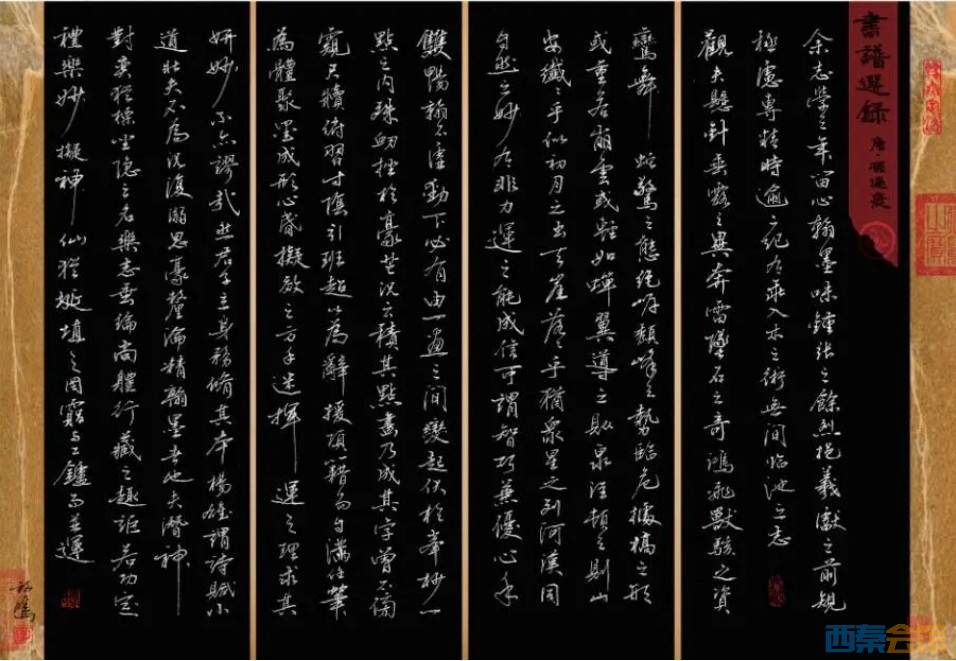 書譜選錄
唐·孫過庭
余志學之年留心翰墨味鍾張之餘烈挹羲獻之前規
極慮專精時逾二紀有乖入木之術無間臨池之志
觀夫懸針垂露之異奔雷墜石之奇鴻飛獸駭之資
鸞舞蛇驚之態絕岸頹峰之勢臨危據槁之形
或重若崩雲或輕如蟬翼導之則泉注頓之則山
安纖々乎似初月之出天崖落々乎猶眾星之列河漢同
自然之妙有非力運之能成信可謂智巧兼優心手
雙暢翰不虛動下必有由一畫之間變起伏於峯杪一
點之內殊衄挫於豪芒況云積其點畫乃成其字曾不傍
窺尺牘俯習寸陰引班超以為辭援項籍而自滿任筆
為體聚墨成形心昏擬效之方手迷揮運之理求其
妍妙不亦謬哉然君子立身務脩其本楊雄謂詩賦小
道壯夫不為況復溺思豪釐淪精翰墨者也夫潛神
對奕猶標坐隱之名樂志垂綸尚體行藏之趣詎若功定
禮樂妙擬神仙猶埏埴之罔窮與工鑪而並運
西秦会